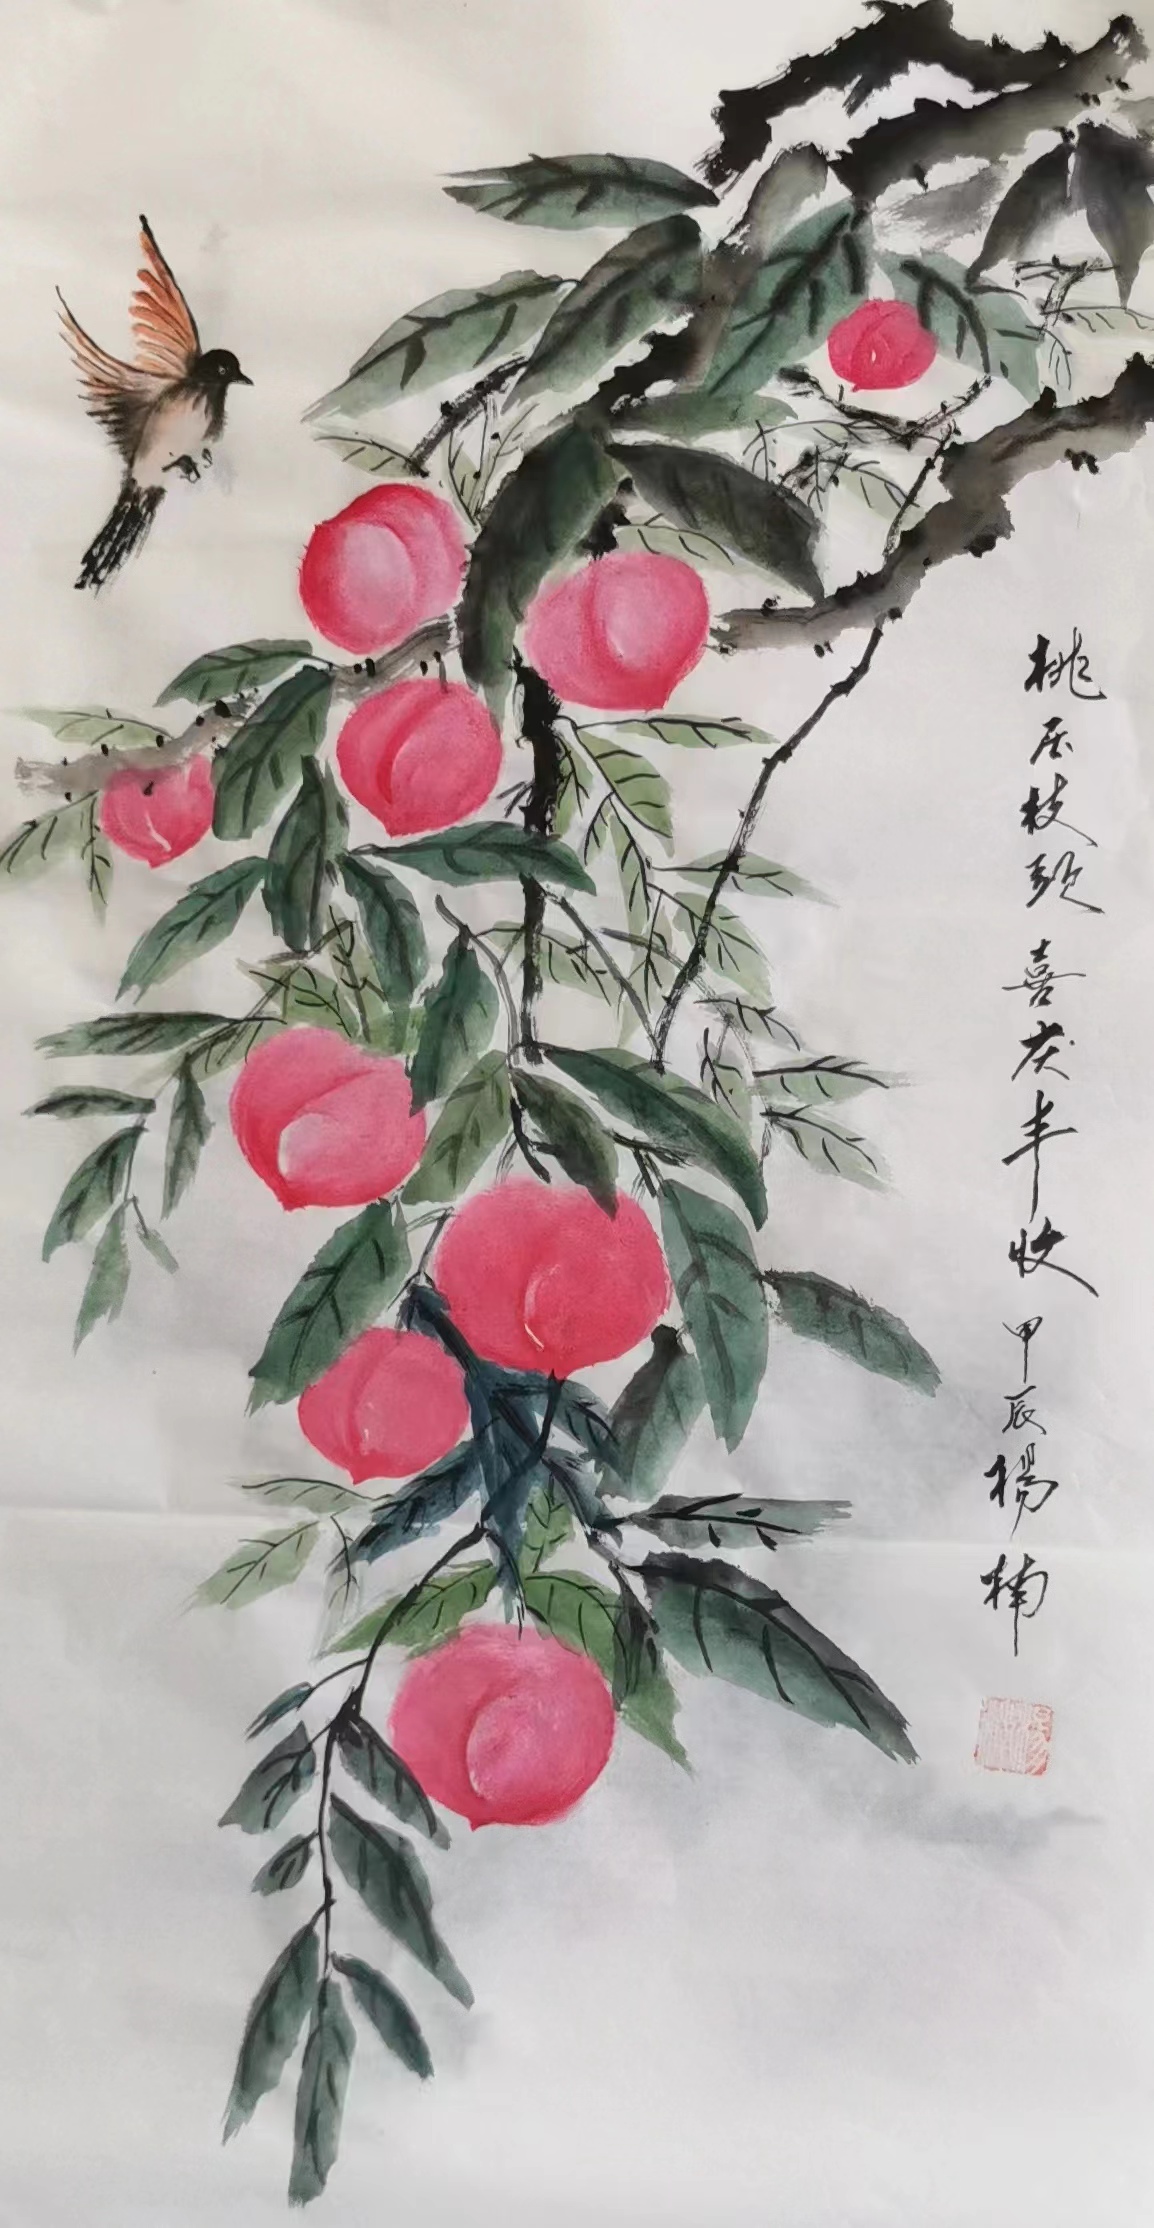 桃居枝头 喜庆丰收 甲辰 杨楠